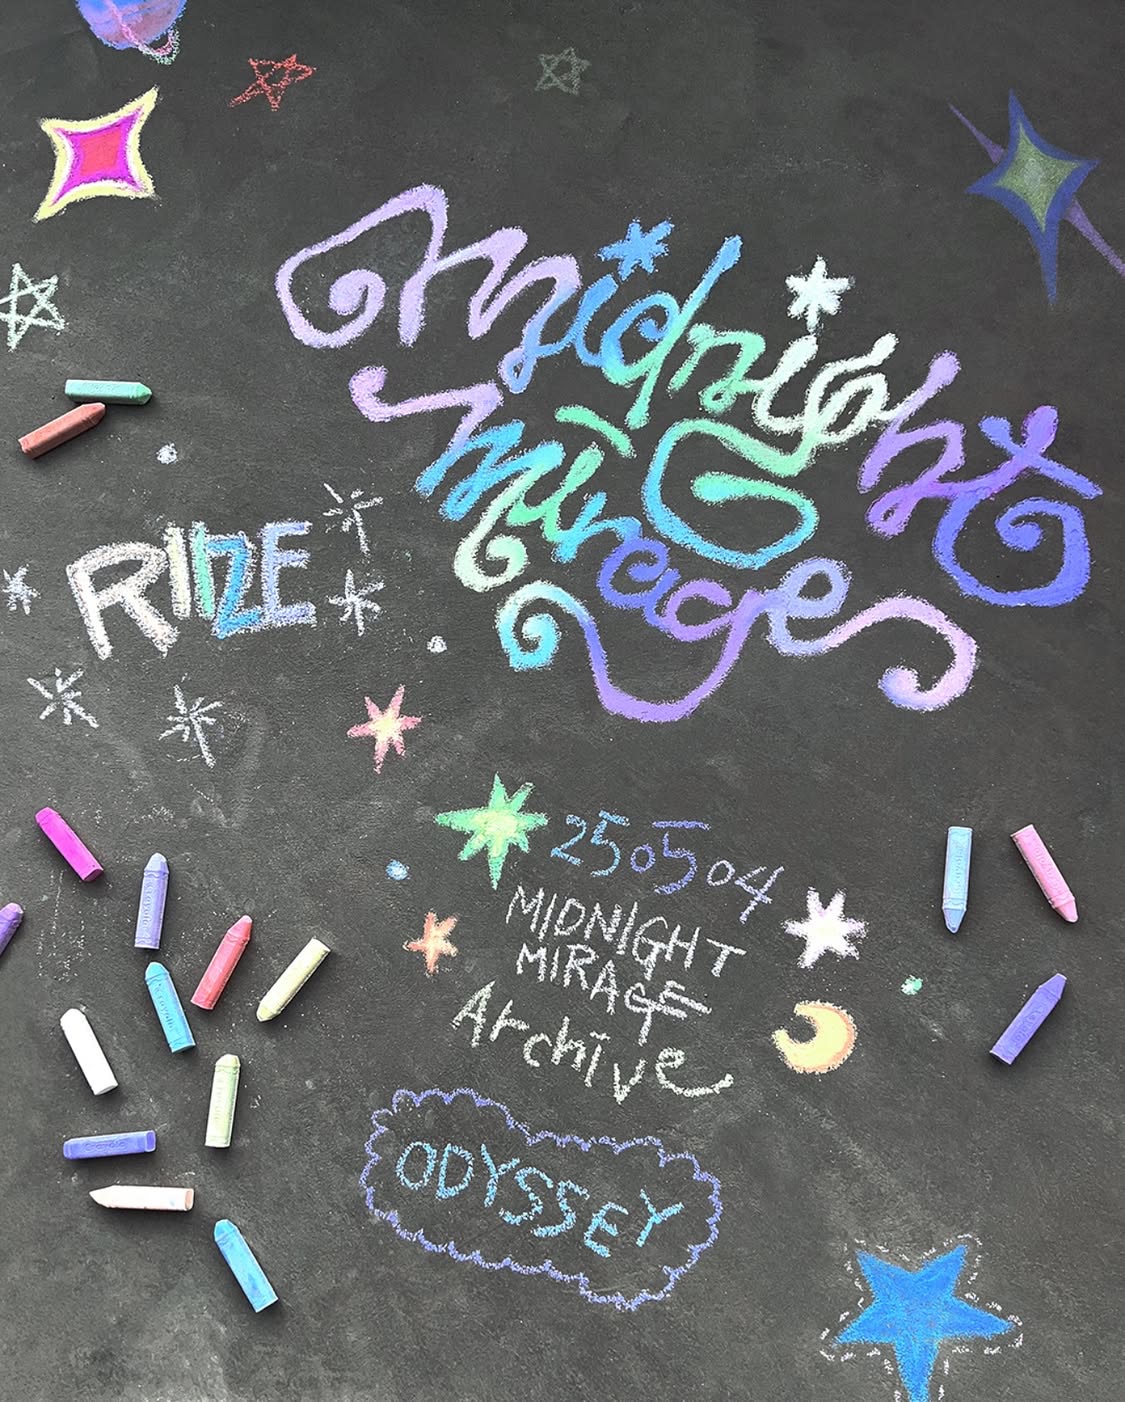 Midnight
Mirage
RIIZE
250504
MIDNIGHT
MIRAGE
Archive
ODYSSEY